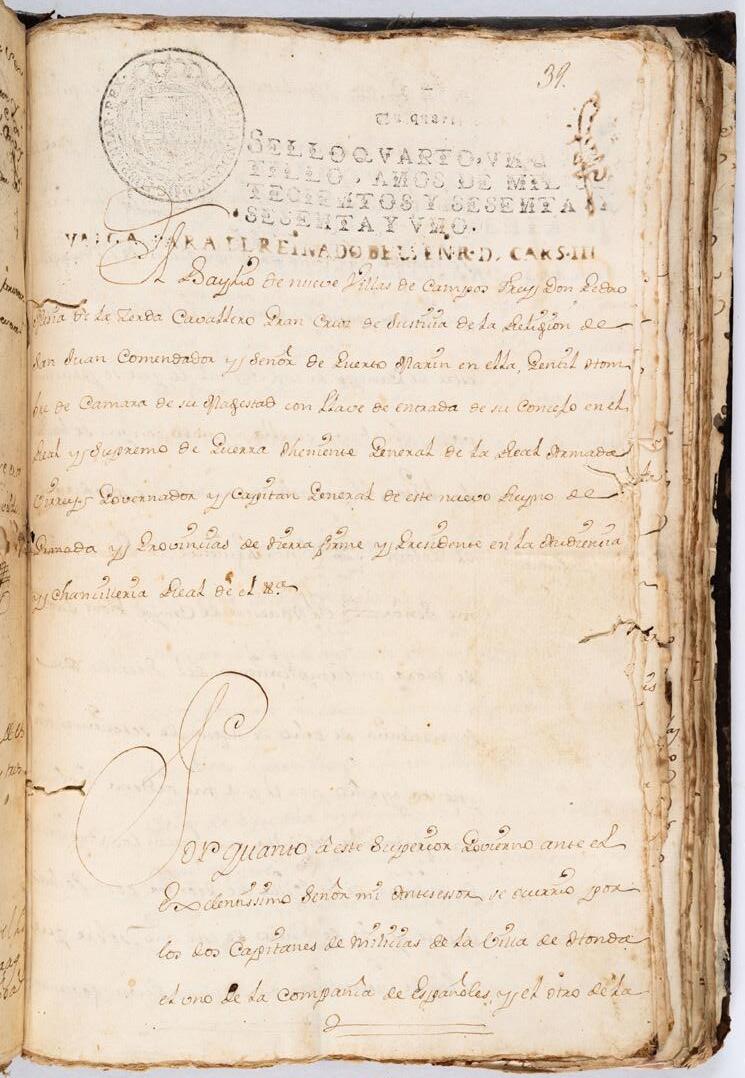 39.
SELLO QVARTO, VN Q
TILLO, AÑOS DE MIL S
TECIENTOS Y SESENTA
SESENTA Y VNO.
VALGA PARA EL REINADO DE L S EN.R.D. CARS.III
El Baylio de nueve Villas de Campos Frey Don Pedro
Mesia de la Zerda Cavallero Gran Cruz de Justicia de la Religion de
San Juan Comendador y Señor de Puerto Marin en ella, Gentil Hom
bre de Camara de su Magestad con llave de entrada de su Concejo en el
Real y Supremo de Guerra theniente General de la Real Armada
Virrey Governador y Capitan General de este nuevo Reyno de
Granada y Provincias de tierra firme y Presidente en la Audiencia
y Chancilleria Real de el &ª
Por quanto â este Superior Govierno ante el
Exelentissimo Señor mi Antesessor se ocurrio por
los dos Capitanes de Milicias de la Villa de Honda
el uno de la Compañia de Españoles, y el otro de la